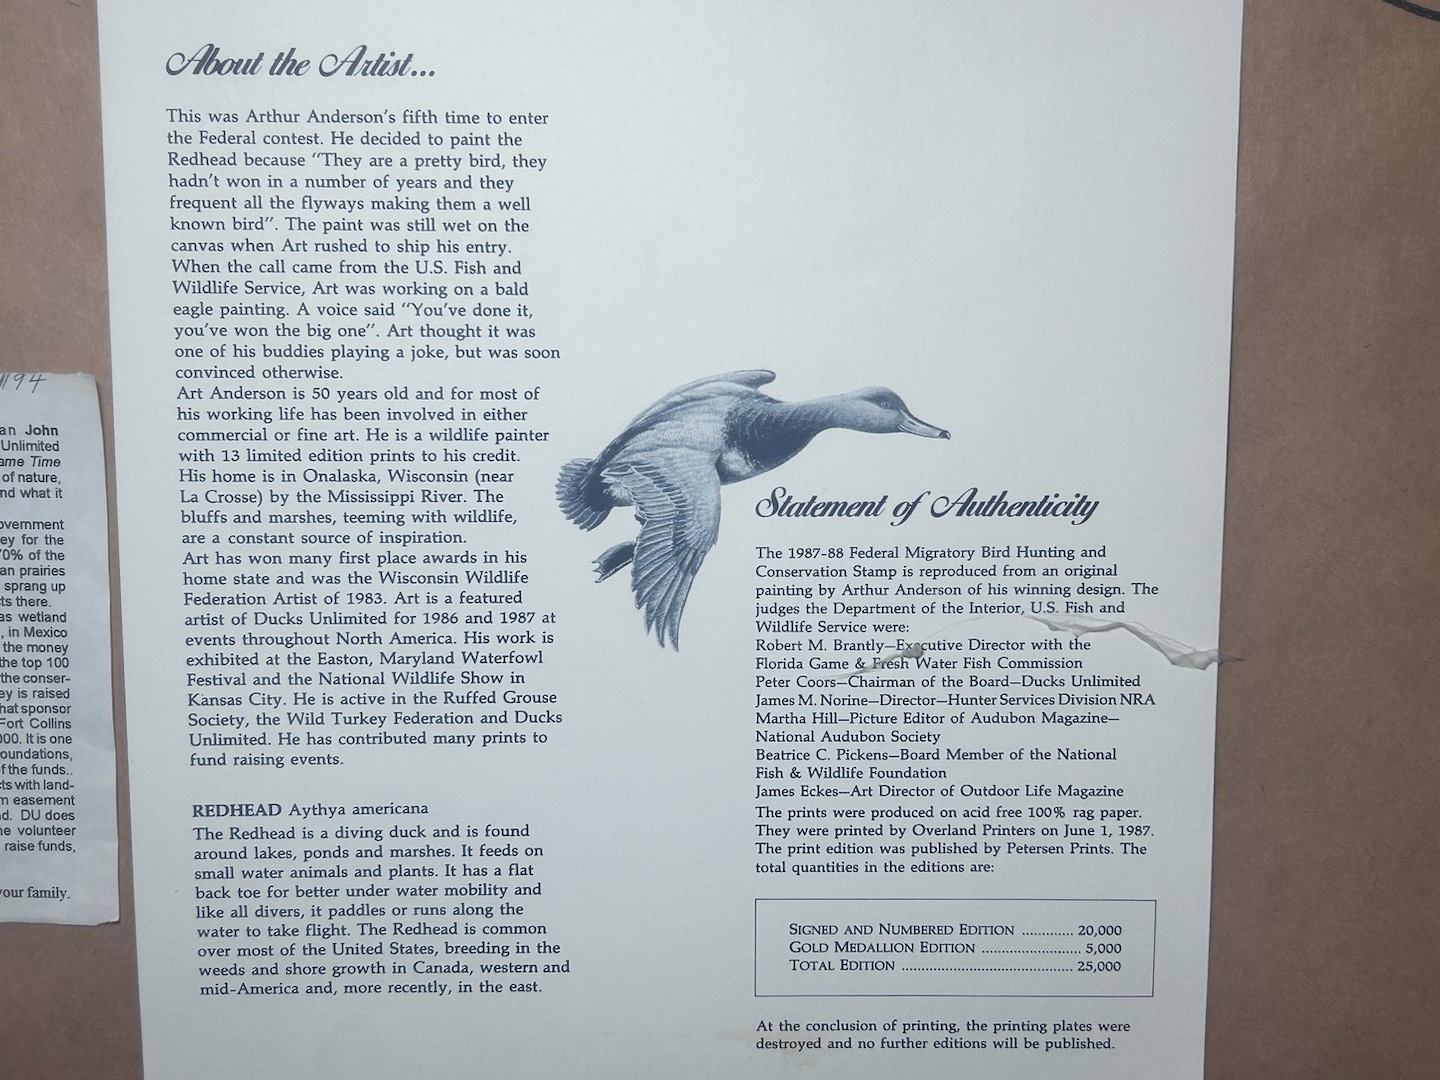 About the Artist...
This was Arthur Anderson's fifth time to enter
the Federal contest. He decided to paint the
Redhead because "They are a pretty bird, they
hadn't won in a number of years and they
frequent all the flyways making them a well
known bird". The paint was still wet on the
canvas when Art rushed to ship his entry.
When the call came from the U.S. Fish and
Wildlife Service, Art was working on a bald
eagle painting. A voice said "You've done it,
you've won the big one". Art thought it was
one of his buddies playing a joke, but was soon
convinced otherwise.
Art Anderson is 50 years old and for most of
his working life has been involved in either
commercial or fine art. He is a wildlife painter
with 13 limited edition prints to his credit.
His home is in Onalaska, Wisconsin (near
La Crosse) by the Mississippi River. The
bluffs and marshes, teeming with wildlife,
are a constant source of inspiration.
Art has won many first place awards in his
home state and was the Wisconsin Wildlife
Federation Artist of 1983. Art is a featured
artist of Ducks Unlimited for 1986 and 1987 at
events throughout North America. His work is
exhibited at the Easton, Maryland Waterfowl
Festival and the National Wildlife Show in
Kansas City. He is active in the Ruffed Grouse
Society, the Wild Turkey Federation and Ducks
Unlimited. He has contributed many prints to
fund raising events.
REDHEAD Aythya americana
The Redhead is a diving duck and is found
around lakes, ponds and marshes. It feeds on
small water animals and plants. It has a flat
back toe for better under water mobility and
like all divers, it paddles or runs along the
water to take flight. The Redhead is common
over most of the United States, breeding in the
weeds and shore growth in Canada, western and
mid-America and, more recently, in the east.
Statement of Authenticity
The 1987-88 Federal Migratory Bird Hunting and
Conservation Stamp is reproduced from an original
painting by Arthur Anderson of his winning design. The
judges the Department of the Interior, U.S. Fish and
Wildlife Service were:
Robert M. Brantly—Executive Director with the
Florida Game & Fresh Water Fish Commission
Peter Coors—Chairman of the Board—Ducks Unlimited
James M. Norine—Director—Hunter Services Division NRA
Martha Hill—Picture Editor of Audubon Magazine—
National Audubon Society
Beatrice C. Pickens—Board Member of the National
Fish & Wildlife Foundation
James Eckes—Art Director of Outdoor Life Magazine
The prints were produced on acid free 100% rag paper.
They were printed by Overland Printers on June 1, 1987.
The print edition was published by Petersen Prints. The
total quantities in the editions are:
SIGNED AND NUMBERED EDITION ............ 20,000
GOLD MEDALLION EDITION ....................... 5,000
TOTAL EDITION ........................................ 25,000
At the conclusion of printing, the printing plates were
destroyed and no further editions will be published.
94
an John
Unlimited
ame Time
of nature,
nd what it
overnment
ey for the
70% of the
an prairies
sprang up
cts there.
as wetland
, in Mexico
the money
the top 100
the conser-
ey is raised
hat sponsor
Fort Collins
000. It is one
oundations,
of the funds..
cts with land-
m easement
d. DU does
he volunteer
raise funds,
your family.